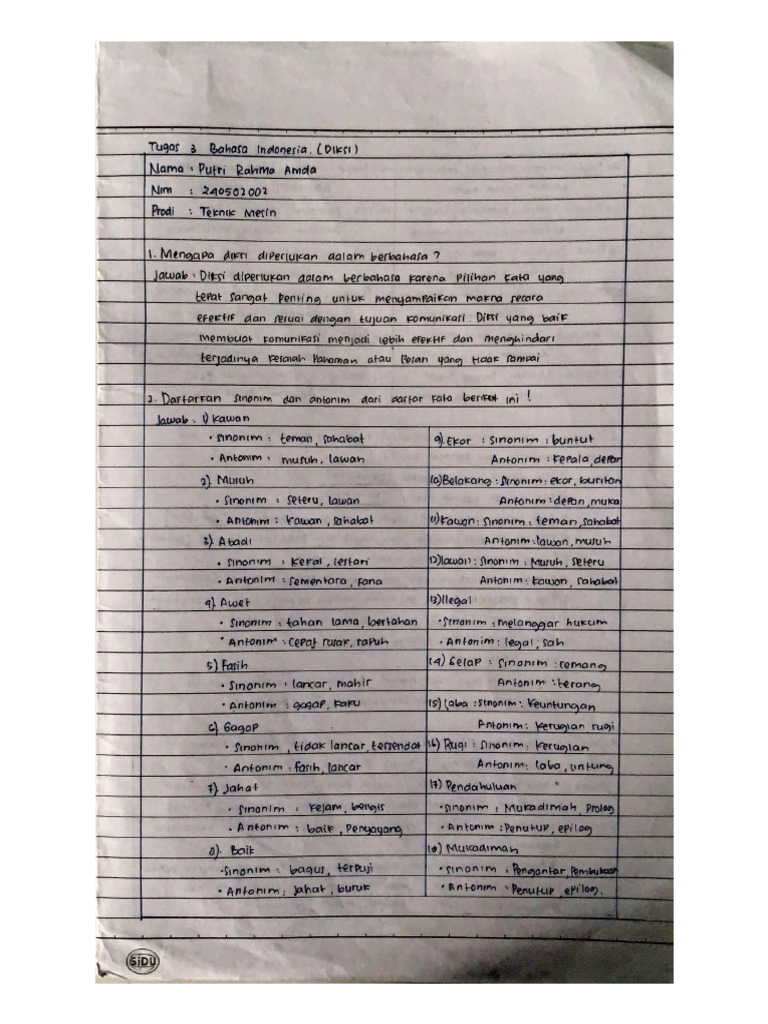 Tugas 3 Bahasa Indonesia. (DIKSI)
Nama : Putri Rahma Amda
Nim : 240502002
Prodi : Teknik Mesin
1. Mengapa diksi diperlukan dalam berbahasa ?
Jawab : Diksi diperlukan dalam berbahasa karena pilihan kata yang
tepat sangat penting untuk menyampaikan makna secara
efektif dan sesuai dengan tujuan komunikasi. Diksi yang baik
membuat komunikasi menjadi lebih efektif dan menghindari
terjadinya kesalah pahaman atau pesan yang tidak sampai
2. Daftarkan sinonim dan antonim dari daftar kata berikut ini !
Jawab : 1) Kawan
• Sinonim : teman, sahabat
• Antonim : musuh, lawan
2) Musuh
• Sinonim : seteru, lawan
• Antonim : kawan, sahabat
3) Abadi
• Sinonim : kekal, lestari
• Antonim : sementara, fana
4) Awet
• Sinonim : tahan lama, bertahan
• Antonim : cepat rusak, rapuh
5) Fasih
• Sinonim : lancar, mahir
• Antonim : gagap, kaku
6) Gagap
• Sinonim , tidak lancar, tersendat
• Antonim : fasih, lancar
7) Jahat
• Sinonim : kejam, bengis
• Antonim : baik, penyayang
8). Baik
• Sinonim : bagus, terpuji
• Antonim : jahat, buruk
9) Ekor : Sinonim : buntut
Antonim : kepala, depan
10) Belakang : Sinonim : ekor, buritan
Antonim : depan, muka
11) Kawan : Sinonim : teman, sahabat
Antonim : lawan, musuh
12) lawan : Sinonim : Musuh, seteru
Antonim : kawan, sahabat
13) Ilegal
• Sinonim : melanggar hukum
• Antonim : legal, sah
14) Gelap : Sinonim : remang
Antonim : terang
15) Laba : Sinonim : Keuntungan
Antonim : kerugian rugi
16) Rugi : Sinonim : kerugian
Antonim : laba, untung
17) Pendahuluan
• Sinonim : Mukadimah, Prolog
• Antonim : Penutup, epilog
18) Mukadimah
• Sinonim : Pengantar, Pembukaan
• Antonim : Penutup, epilog.
SiDU